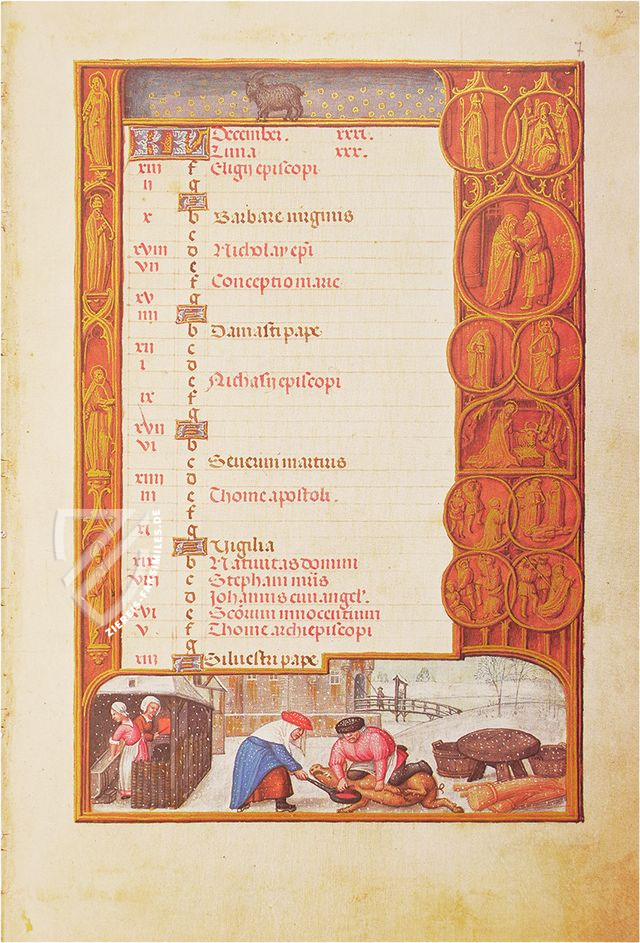 7
7
KL December. xxxi.
Luna xxx.
xiii f Eligij episcopi
ii g
A
x b Barbare virginis
c
xviii d Nicholay epi
vii e
f Conceptio marie
xv g
iiii A
b Damasti pape
xii c
i d
e Nichasij episcopi
ix f
g
xvii A
vi b
c Severini martiris
xiiii d
iii e Thome apostoli.
f
xi g
A Vigilia
xix b Nativitas domini
viii c Stephani mris
d Johannis euuangel'.
xvi e Scorum innocentium
v f Thome archiepiscopi
g
xiii A Silvestri pape
ZIEREIS-FACSIMILES.DE